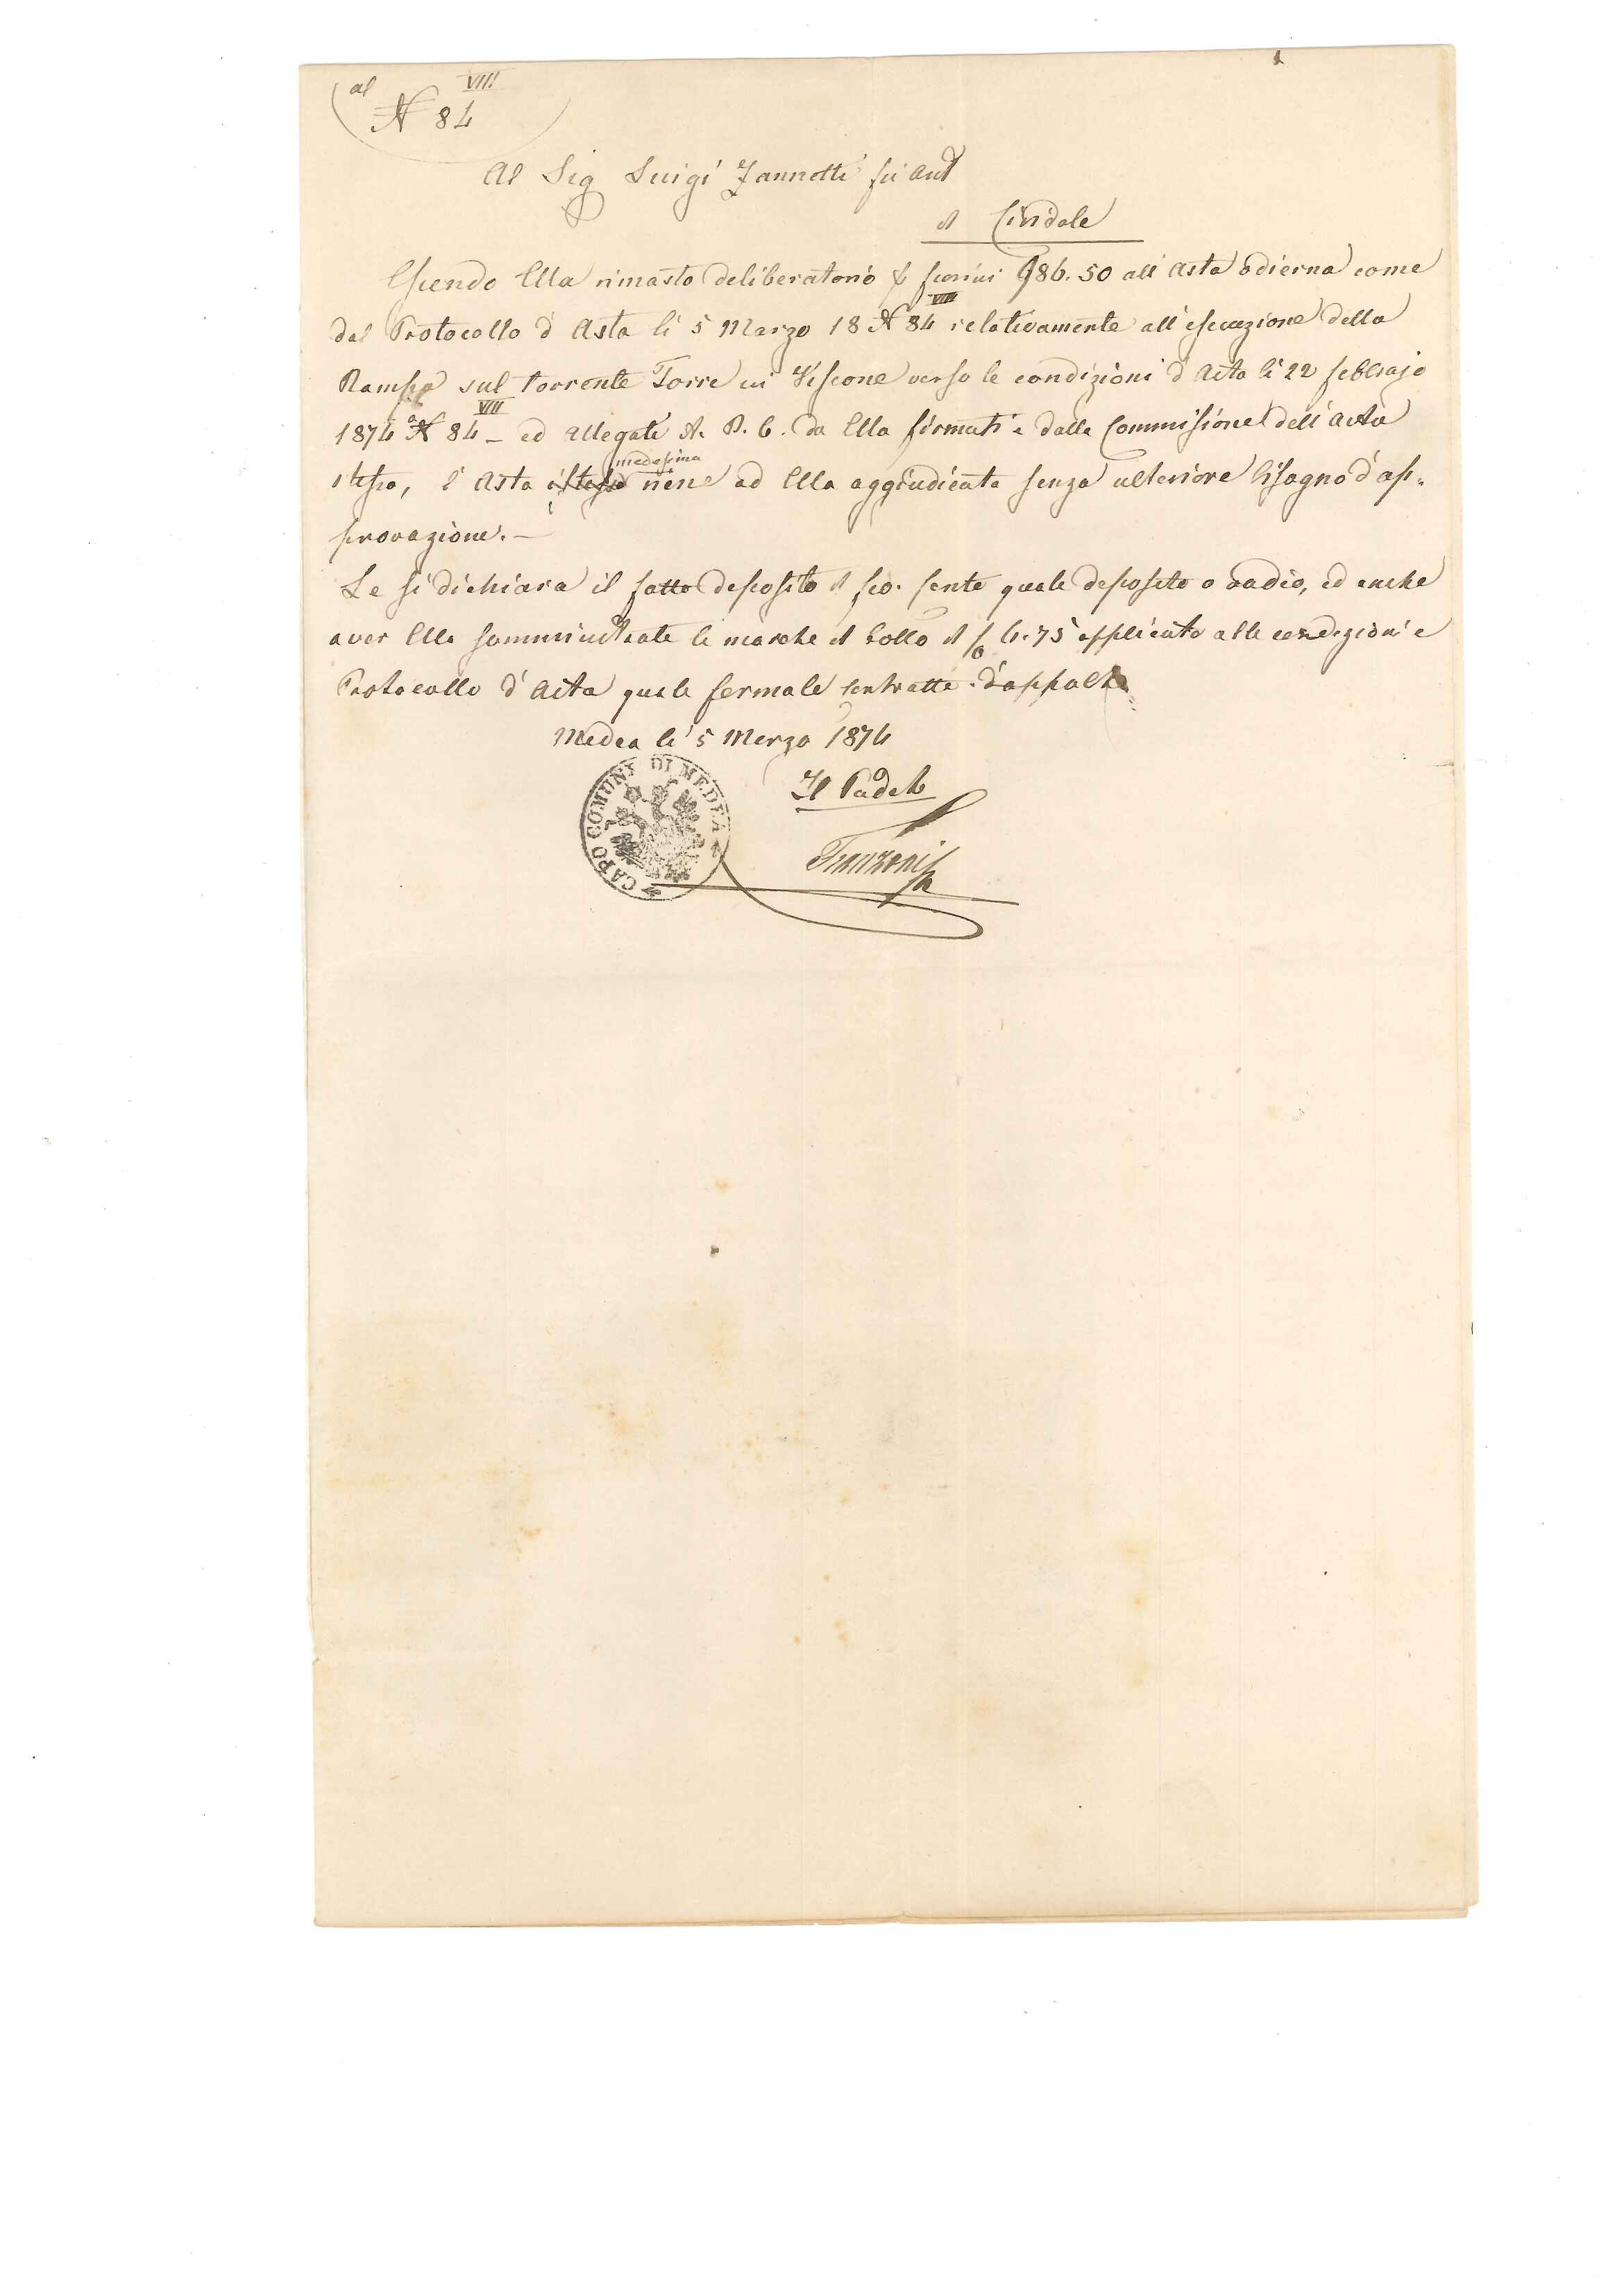 al VIII
N 84
Al Sig Luigi Zannetti fu Ant
di Cividale
Essendo Ella rimasto deliberatorio p fiorini 986.50 all' Asta odierna come
dal Protocollo d' Asta li 5 Marzo 18 N 84 VIII relativamente all' esecuzione della
Rampa sul torrente Torre in Viscone verso le condizioni d' Asta li 22 febbrajo
1874 a N 84 VIII – ed allegati A. B. C. da Ella firmati e dalla Commissione dell' asta
stessa, l' Asta istessa medesima viene ad Ella aggiudicata senza ulteriore bisogno d' ap-
provazione. –
Le si dichiara il fatto deposito di fio. cento quale deposito o vadio, ed anche
aver Ella somministrate le marche di bollo di f 6.75 applicate alle condizioni e
Protocollo d' Asta quale formale contratto d' appalto
Medea li 5 Marzo 1874
Il Podestà
CAPO COMUNE DI MEDEA